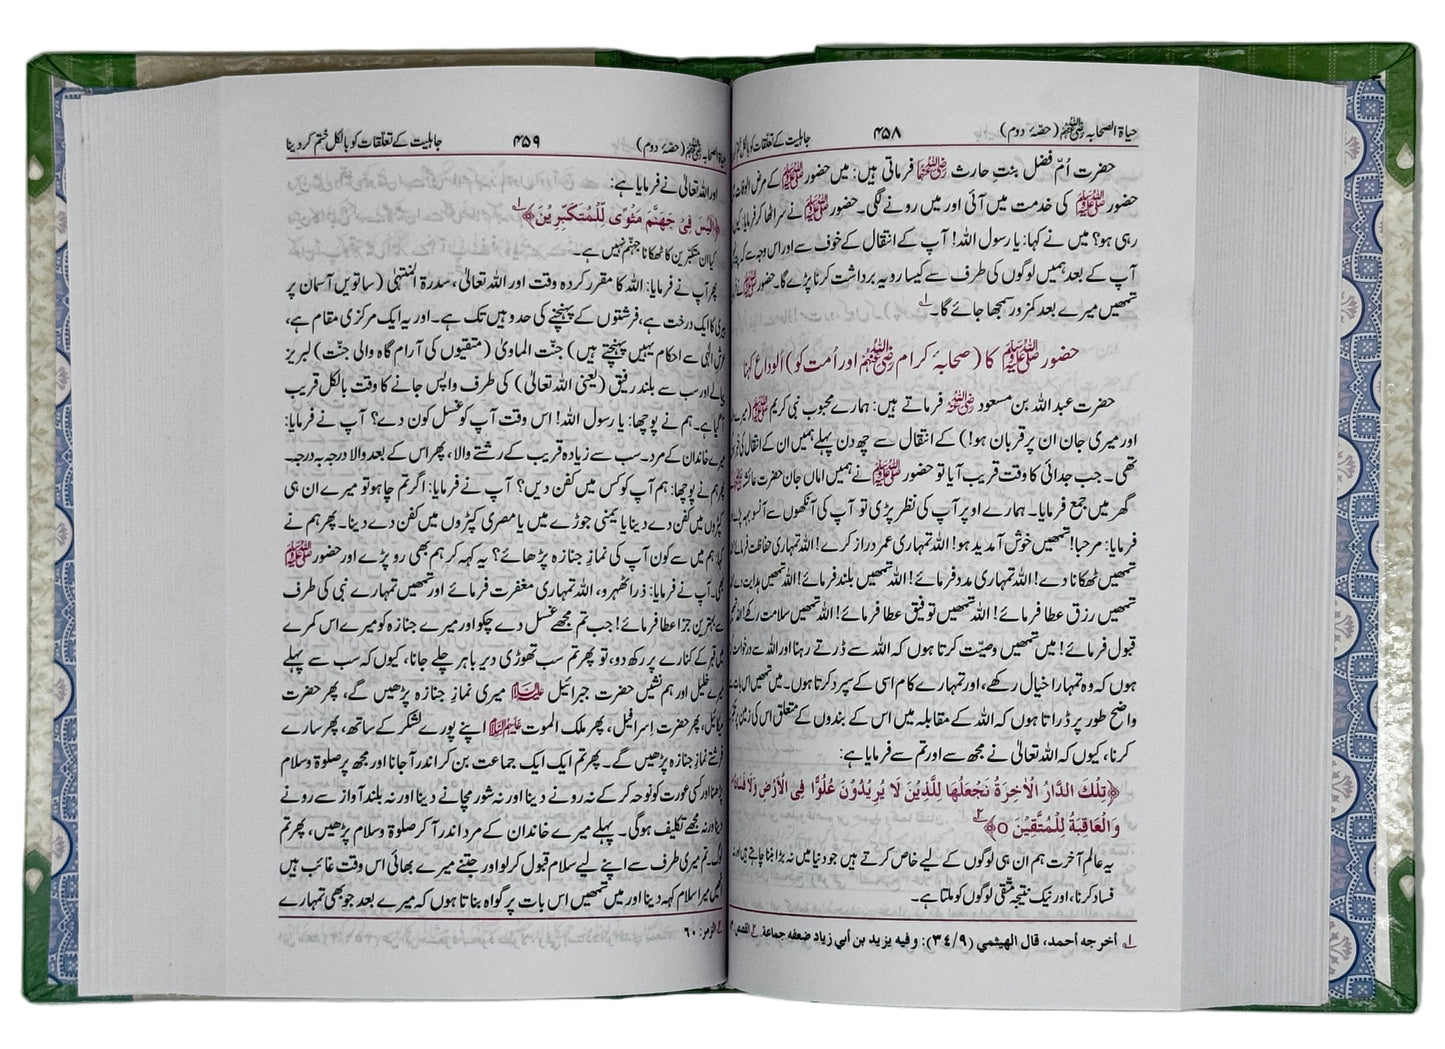 حیاۃ الصحابہ رضی اللہ عنہم (حصّۂ دوم) ۴۵۸ جاہلیت کے تعلقات کو بالکل ختم
حضرت اُمّ فضل بنتِ حارث رضی اللہ عنہا فرماتی ہیں: میں حضور ﷺ کے مرض الوفات
حضور ﷺ کی خدمت میں آئی اور میں رونے لگی۔ حضور ﷺ نے سر اٹھا کر فرمایا: کیوں
رہی ہو؟ میں نے کہا: یا رسول اللہ! آپ کے انتقال کے خوف سے اور اس وجہ سے کہ پتہ
آپ کے بعد ہمیں لوگوں کی طرف سے کیسا رویہ برداشت کرنا پڑے گا۔ حضور ﷺ نے
تمھیں میرے بعد کمزور سمجھا جائے گا۔ ۱
حضور ﷺ کا (صحابۂ کرام رضی اللہ عنہم اور اُمت کو) الوداع کہنا
حضرت عبد اللہ بن مسعود رضی اللہ عنہ فرماتے ہیں: ہمارے محبوب نبی کریم ﷺ (میرے
اور میری جان ان پر قربان ہو!) کے انتقال سے چھ دن پہلے ہمیں ان کے انتقال کی خبر
تھی۔ جب جدائی کا وقت قریب آیا تو حضور ﷺ نے ہمیں اماں جان حضرت عائشہ
گھر میں جمع فرمایا۔ ہمارے اوپر آپ کی نظر پڑی تو آپ کی آنکھوں سے آنسو بہہ پڑے
فرمایا: مرحبا! تمھیں خوش آمدید ہو! اللہ تمہاری عمر دراز کرے! اللہ تمہاری حفاظت فرمائے!
تمھیں ٹھکانا دے! اللہ تمہاری مدد فرمائے! اللہ تمھیں بلند فرمائے! اللہ تمھیں ہدایت دے!
تمھیں رزق عطا فرمائے! اللہ تمھیں توفیق عطا فرمائے! اللہ تمھیں سلامت رکھے! اللہ تمھیں
قبول فرمائے! میں تمھیں وصیّت کرتا ہوں کہ اللہ سے ڈرتے رہنا اور اللہ سے درخواست
ہوں کہ وہ تمہارا خیال رکھے، اور تمہارے کام اسی کے سپرد کرتا ہوں۔ میں تمھیں اس بات سے
واضح طور پر ڈراتا ہوں کہ اللہ کے مقابلہ میں اس کے بندوں کے متعلق اس کی زمین پر
کرنا، کیوں کہ اللہ تعالیٰ نے مجھ سے اور تم سے فرمایا ہے:
﴿تِلْكَ الدَّارُ الْاٰخِرَةُ نَجْعَلُهَا لِلَّذِيْنَ لَا يُرِيْدُوْنَ عُلُوًّا فِى الْاَرْضِ وَلَا فَسَادًا
وَالْعَاقِبَةُ لِلْمُتَّقِيْنَ ○﴾ ۲
یہ عالمِ آخرت ہم ان ہی لوگوں کے لیے خاص کرتے ہیں جو دنیا میں نہ بڑا بننا چاہتے ہیں اور نہ
فساد کرنا، اور نیک نتیجہ متّقی لوگوں کو ملتا ہے۔
۱ أخرجه أحمد، قال الهيثمي (۹/۳٤): وفيه يزيد بن أبي زياد ضعفه جماعة ۲ القصص
حیاۃ الصحابہ رضی اللہ عنہم (حصّۂ دوم) ۴۵۹ جاہلیت کے تعلقات کو بالکل ختم کر دینا
اور اللہ تعالیٰ نے فرمایا ہے:
﴿اَلَيْسَ فِىْ جَهَنَّمَ مَثْوًى لِّلْمُتَكَبِّرِيْنَ﴾ ۱
کیا ان متکبّرین کا ٹھکانا جہنّم نہیں ہے۔
پھر آپ نے فرمایا: اللہ کا مقرر کردہ وقت اور اللہ تعالیٰ، سدرۃ المنتہیٰ (ساتویں آسمان پر
بیری کا ایک درخت ہے، فرشتوں کے پہنچنے کی حد وہیں تک ہے۔ اور یہ ایک مرکزی مقام ہے،
عرشِ الٰہی سے احکام یہیں پہنچتے ہیں) جنّت الماویٰ (متقیوں کی آرام گاہ والی جنّت) لبریز
پیالے اور سب سے بلند رفیق (یعنی اللہ تعالیٰ) کی طرف واپس جانے کا وقت بالکل قریب
آگیا ہے۔ ہم نے پوچھا: یا رسول اللہ! اس وقت آپ کو غسل کون دے؟ آپ نے فرمایا:
میرے خاندان کے مرد۔ سب سے زیادہ قریب کے رشتے والا، پھر اس کے بعد والا درجہ بہ درجہ۔
پھر ہم نے پوچھا: ہم آپ کو کس میں کفن دیں؟ آپ نے فرمایا: اگر تم چاہو تو میرے ان ہی
کپڑوں میں کفن دے دینا یا یمنی جوڑے میں یا مصری کپڑوں میں کفن دے دینا۔ پھر ہم نے
کہا: ہم میں سے کون آپ کی نمازِ جنازہ پڑھائے؟ یہ کہہ کر ہم بھی رو پڑے اور حضور ﷺ
بھی۔ آپ نے فرمایا: ذرا ٹھہرو، اللہ تمہاری مغفرت فرمائے اور تمھیں تمہارے نبی کی طرف
سے بہترین جزا عطا فرمائے! جب تم مجھے غسل دے چکو اور میرے جنازہ کو میرے اس کمرے
میں قبر کے کنارے پر رکھ دو، تو پھر تم سب تھوڑی دیر باہر چلے جانا، کیوں کہ سب سے پہلے
میرے خلیل اور ہم نشیں حضرت جبرائیل علیہ السلام میری نمازِ جنازہ پڑھیں گے، پھر حضرت
میکائل، پھر حضرت اِسرافیل، پھر ملک الموت علیہم السلام اپنے پورے لشکر کے ساتھ، پھر سارے
فرشتے نماز جنازہ پڑھیں گے۔ پھر تم ایک ایک جماعت بن کر اندر آجانا اور مجھ پر صلوۃ وسلام
پڑھنا اور کسی عورت کو نوحہ کر کے نہ رونے دینا اور نہ شور مچانے دینا اور نہ بلند آواز سے رونے
دینا ورنہ مجھے تکلیف ہوگی۔ پہلے میرے خاندان کے مرد اندر آکر صلوۃ وسلام پڑھیں، پھر تم
لوگ۔ تم میری طرف سے اپنے لیے سلام قبول کر لو اور جتنے میرے بھائی اس وقت غائب ہیں
انھیں میرا سلام کہہ دینا اور میں تمھیں اس بات پر گواہ بناتا ہوں کہ میرے بعد جو بھی تمہارے
۱ الزمر: ٦٠